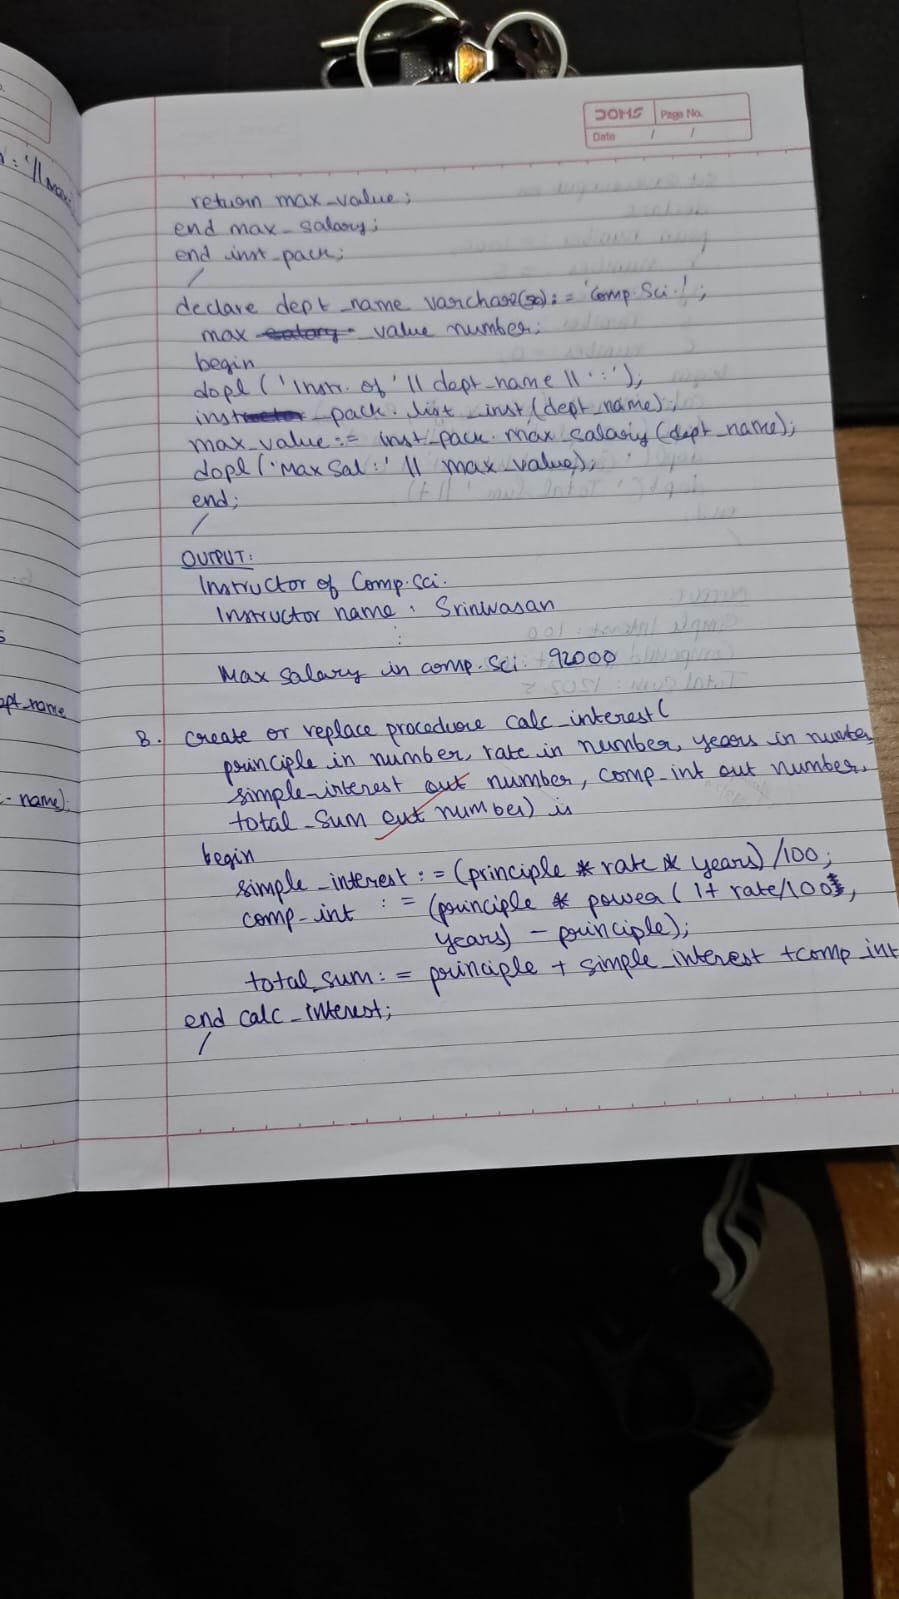 DOMS Page No.
Date / /
return max_value;
end max_salary;
end inst_pack;
/
declare dept_name varchar(50):= 'Comp.Sci.';
max value number;
begin
dopl ('Instr. of' || dept_name || ':');
inst pack. list_inst (dept_name);
max_value:= inst_pack. max_salary (dept_name);
dopl ('Max Sal:' || max_value);
end;
/
OUTPUT:
Instructor of Comp.Sci.
Instructor name : Srinivasan
:
Max salary in comp.sci: 92000
8. create or replace procedure calc_interest(
principle in number, rate in number, years in number
simple_interest out number, comp_int out number,
total_sum out number) is
begin
simple_interest := (principle * rate * years) /100;
comp_int := (principle * power ( 1+ rate/100),
years) - principle);
total_sum:= principle + simple_interest +comp_int
end calc_interest;
/
pt_name
name);